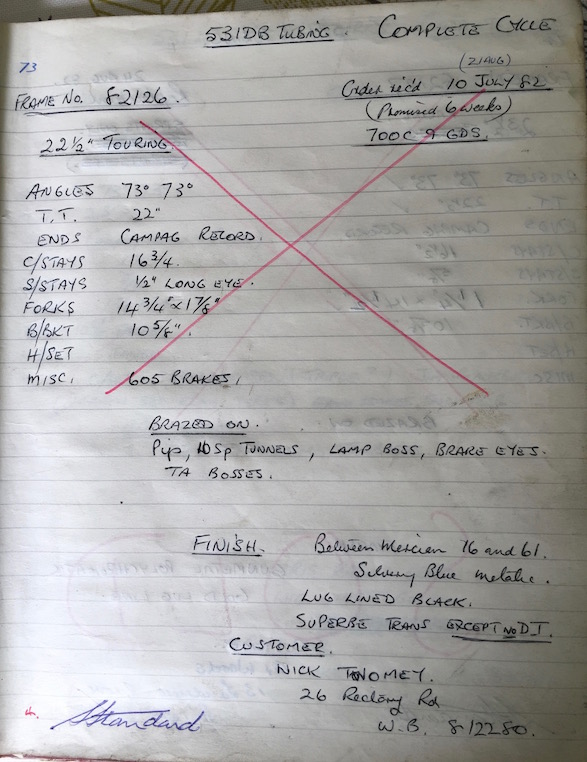 531DB TUBING. COMPLETE CYCLE
73
(21 AUG)
FRAME No. 82126. Order rec'd 10 JULY 82
(Promised 6 weeks)
700C & GDS.
22½" TOURING.
ANGLES 73° 73°
T.T. 22"
ENDS CAMPAG RECORD.
C/STAYS 16 3/4.
S/STAYS ½" LONG EYE.
FORKS 14 3/4" x 1 7/8"
B/BKT 10 5/8".
H/SET
MISC. 605 BRAKES,
BRAZED ON.
Pip, 10 Sp TUNNELS, LAMP BOSS, BRAKE EYES.
TA BOSSES.
FINISH. Between Mercian 76 and 61.
Silvery Blue metalic.
LUG LINED BLACK.
SUPERBE TRANS EXCEPT NO D.T.
CUSTOMER.
NICK TWOMEY.
26 Rectory Rd
W.B. 812280.